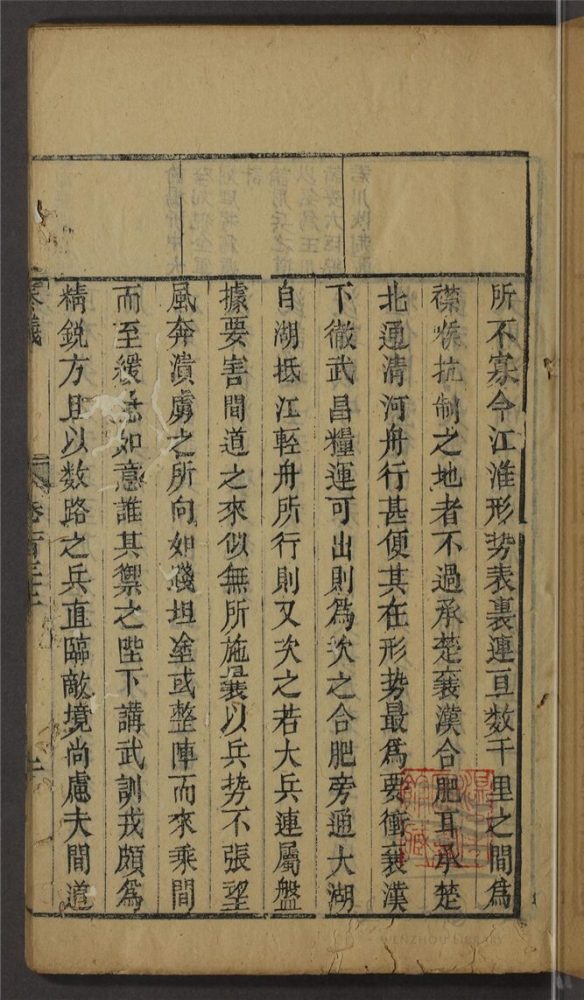 所不寡今江淮形势表裏連亘数千里之間爲
襟喉抗制之地者不過承楚襄漢合肥耳承楚
北通清河舟行甚便其在形势最爲要衝襄漢
下徹武昌糧運可出則爲次之合肥旁通大湖
自湖抵江輕舟所行則又次之若大兵連屬盤
據要害間道之來似無所施曩以兵势不張望
風奔潰虜之所向如踐坦塗或整陣而來乘間
而至緩急如意誰其禦之陛下講武訓戎頗爲
精鋭方且以数路之兵直臨敵境尚慮夫間道
奏議